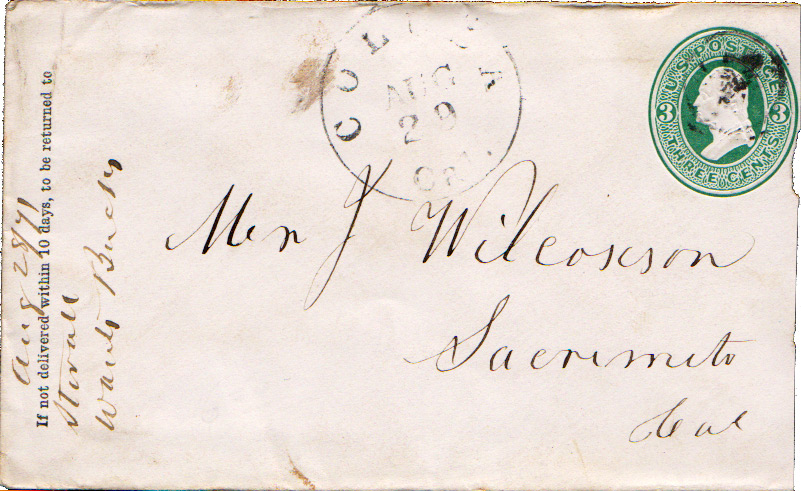 COLUSA
AUG
29
CAL.
U.S. POSTAGE
3 3
THREE CENTS
Mr J Wilcoxson
Sacrimento
Cal
If not delivered within 10 days, to be returned to
Aug 28/71
wants Bucks